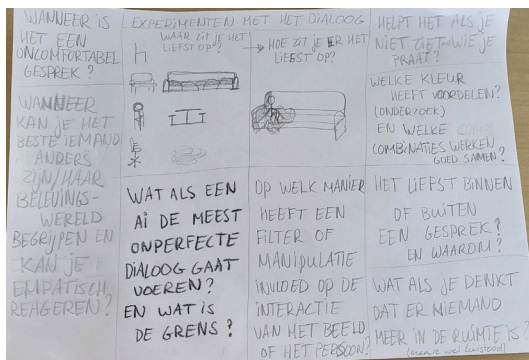 WANNEER IS
HET EEN
ONCOMFORTABEL
GESPREK?
WANNEER
KAN JE HET
BESTE IEMAND
ANDERS
ZIJN/HAAR
BELEVINGS-
WERELD
BEGRIJPEN EN
KAN JE
EMPATISCH
REAGEREN?
EXPERIMENTEN MET HET DIALOOG
WAAR ZIT JE HET
LIEFST OP?
HOE ZIT JE ER HET
LIEFST OP?
WAT ALS EEN
Ai DE MEEST
ONPERFECTE
DIALOOG GAAT
VOEREN?
EN WAT IS
DE GRENS?
OP WELK MANIER
HEEFT EEN
FILTER OF
MANIPULATIE
INVLOED OP DE
INTERACTIE
VAN HET BEELD
OF HET PERSOON?
HELPT HET ALS JE
NIET ZIET WIE JE
PRAAT?
WELKE KLEUR
HEEFT VOORDELEN?
(ONDERZOEK)
EN WELKE
COMBINATIES WERKEN
GOED SAMEN?
HET LIEFST BINNEN
OF BUITEN
EEN GESPREK?
EN WAAROM?
WAT ALS JE DENKT
DAT ER NIEMAND
MEER IN DE RUIMTE IS?